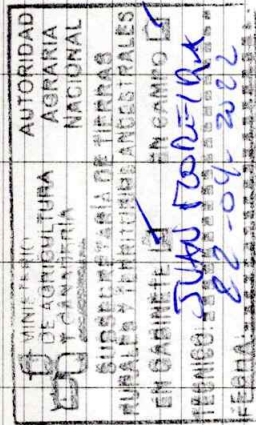 MINISTERIO
DE AGRICULTURA
Y GANADERIA
AUTORIDAD
AGRARIA
NACIONAL
SUBSECRETARIA DE TIERRAS
RURALES Y TERRITORIOS ANCESTRALES
EN GABINETE EN CAMPO
TECNICO: JUAN
FECHA: 2022